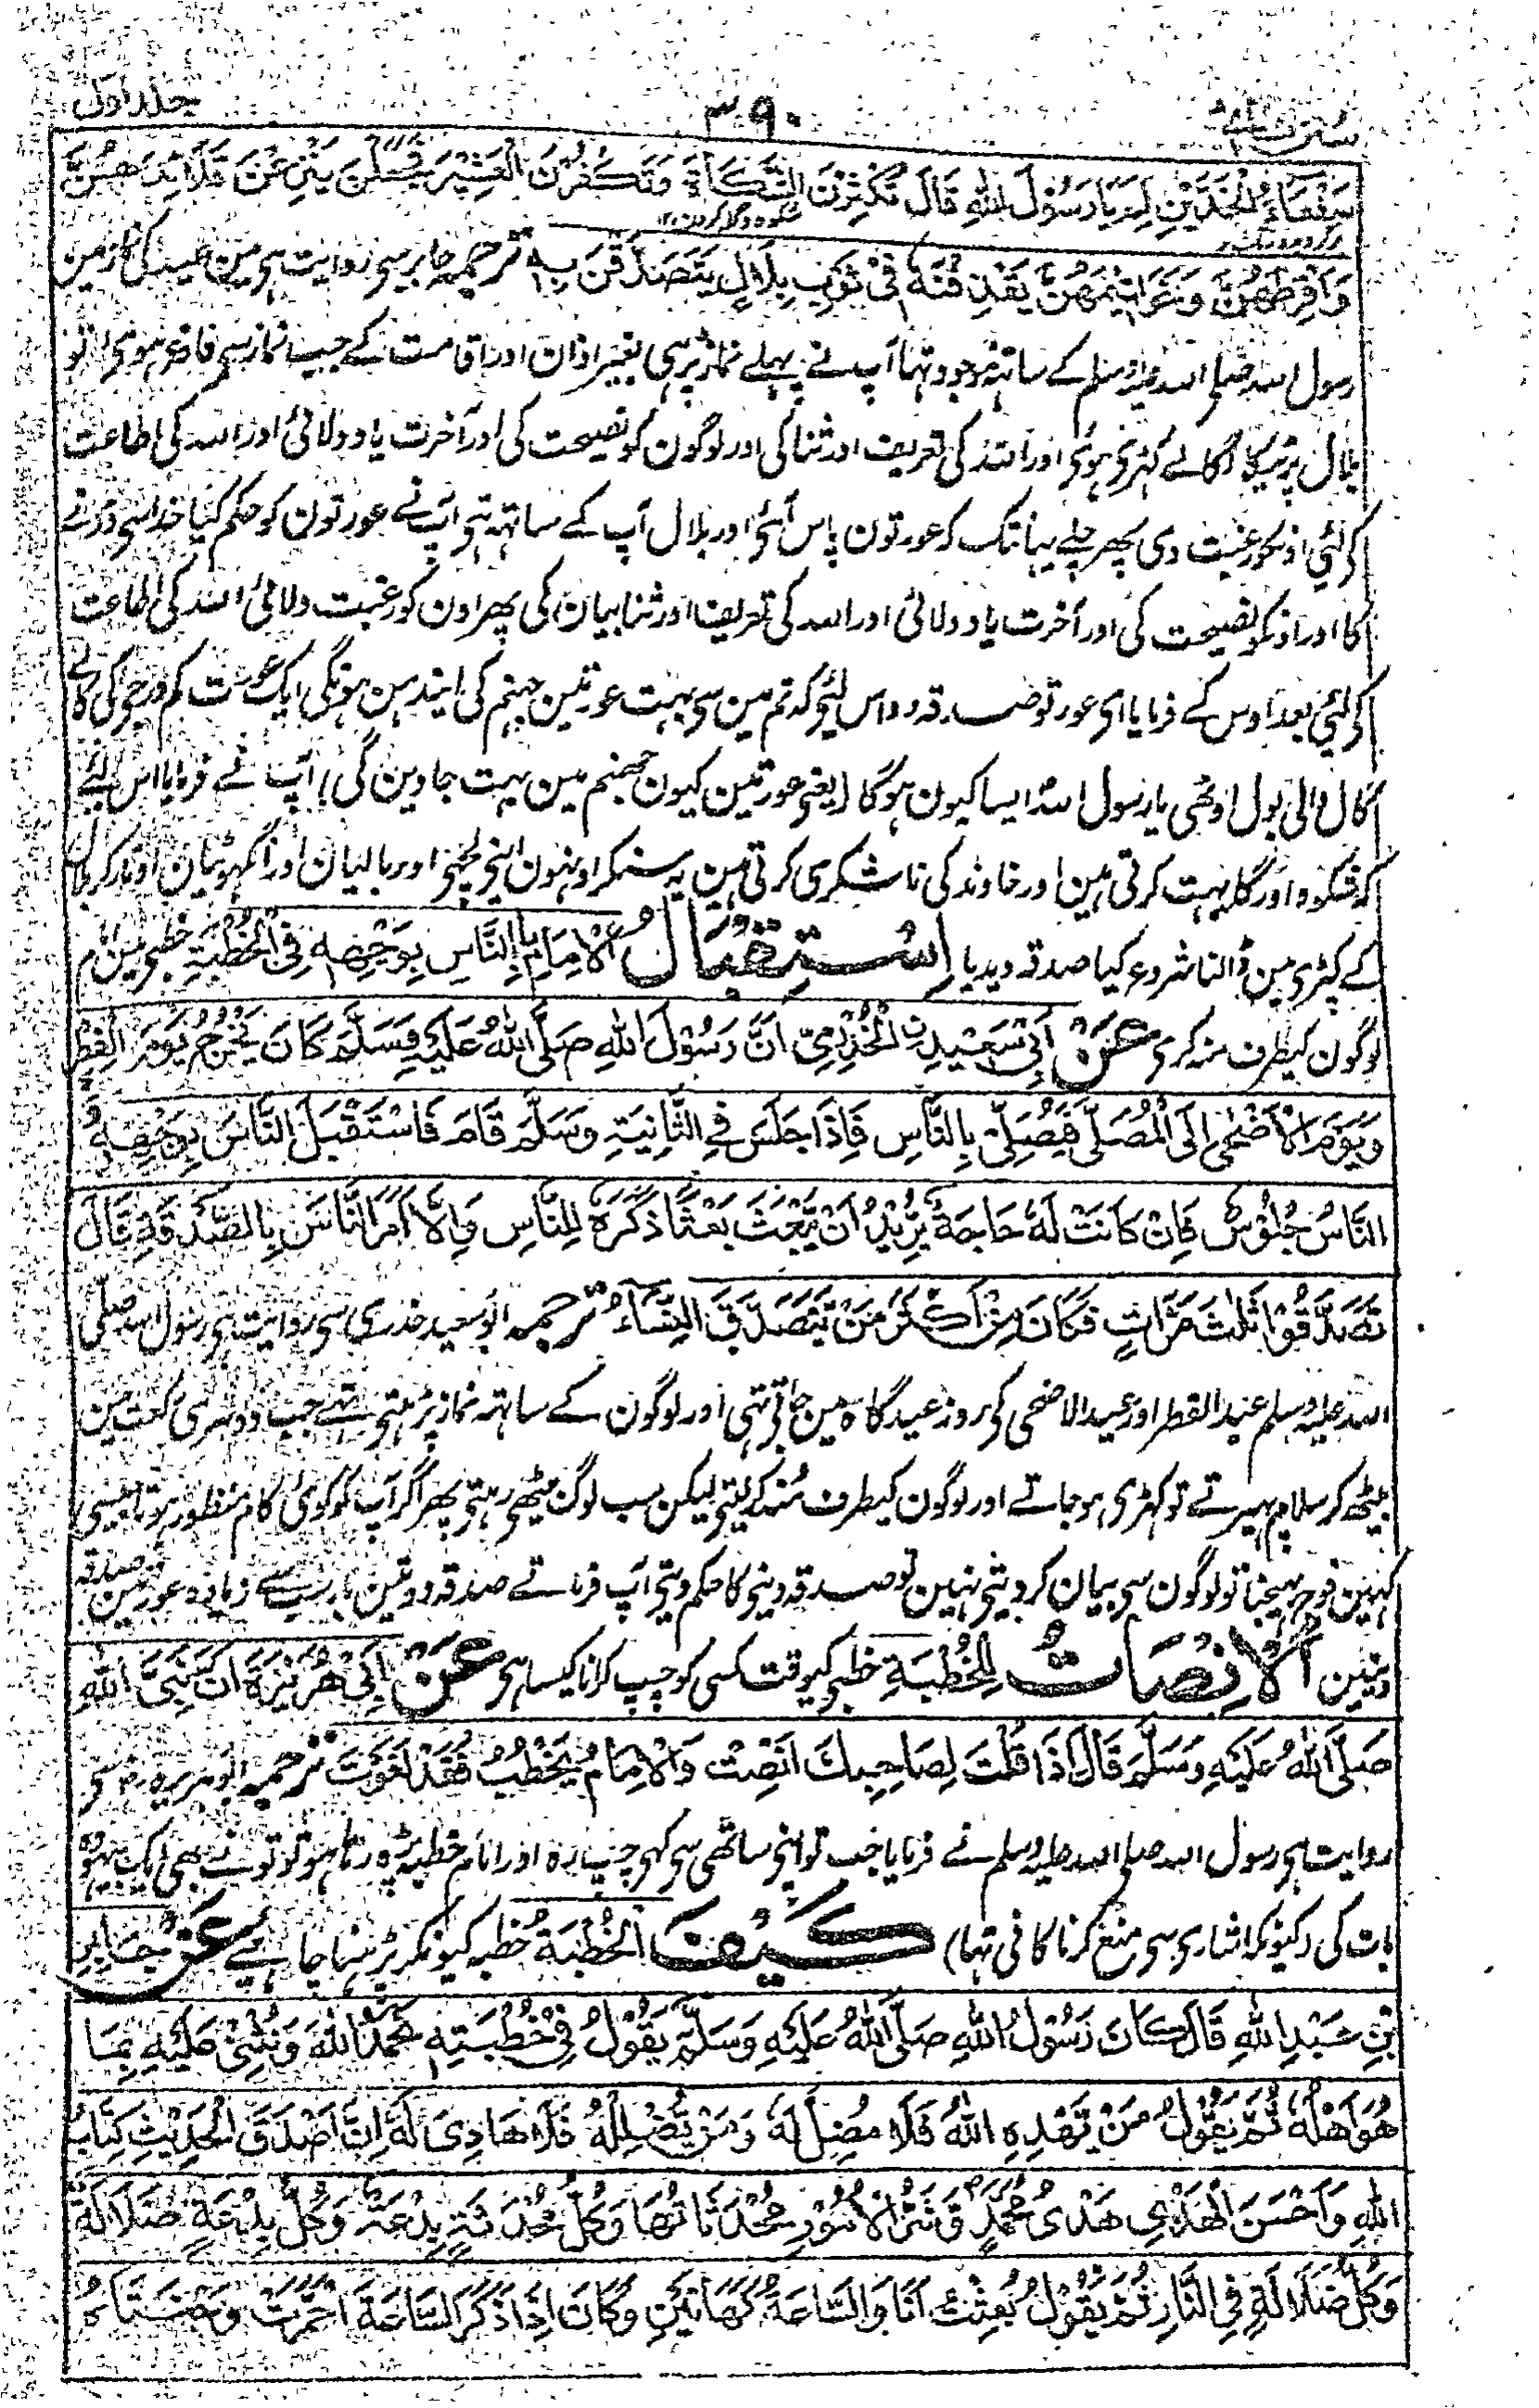 جلد اول ۳۹۰ سنن نسائی
سَفْعَاءُ الْخَدَّيْنِ لِمَ يَا رَسُوْلَ اللهِ قَالَ تُكْثِرْنَ الشَّكَاةَ وَتَكْفُرْنَ الْعَشِيْرَ فَجَعَلْنَ يَنْزِعْنَ قَلَائِدَهُنَّ
شکوہ و گلہ کردن ۱۲
وَاَقْرُطَهُنَّ وَخَوَاتِيْمَهُنَّ يَقْذِفْنَهٗ فِيْ ثَوْبِ بِلَالٍ يَتَصَدَّقْنَ بِهٖ ترجمہ جابر سی روایت ہی مین عید کی نماز مین
رسول اللہ صلی اللہ علیہ وسلم کے ساتہ موجود تہا آپ نے پہلے نماز پڑہی بغیر اذان اور اقامت کے جب نماز سی فارغ ہوی تو
بلال پر ٹیکا لگا کے کہڑی ہوئی اور اللہ کی تعریف اور ثنا کی اور لوگون کو نصیحت کی اور آخرت یاد دلائی اور اللہ کی اطاعت
کی لئی اونکو رغبت دی پھر چلے یہانتک کہ عورتون پاس آئی اور بلال آپ کے ساتہ تہی آپ نے عورتون کو حکم کیا خدا سی ڈرنے
کا اور اونکو نصیحت کی اور آخرت یاد دلائی اور اللہ کی تعریف اور ثنا بیان کی پھر اون کو رغبت دلائی اللہ کی اطاعت
کی لئی بعد اوس کے فرمایا ای عورتو صدقہ دو اس لئی کہ تم مین سی بہت عورتین جہنم کی ایندہن ہونگی ایک عورت کم درجی کی کالے
گال والی بول اوٹھی یا رسول اللہ ایسا کیون ہوگا (یعنی عورتین کیون جہنم مین بہت جاوین گی) آپ نے فرمایا اس لئے
کہ شکوہ اور گلہ بہت کرتی ہین اور خاوند کی ناشکری کرتی ہین یہ سنکر اونہون اپنی اور بالیان اور انگہوٹیان اوتار کر بلال
کے کپڑی مین ڈالنا شروع کیا صدقہ دیدیا اِسْتِقْبَالُ الْاِمَامِ النَّاسِ بِوَجْهِهٖ فِي الْخُطْبَةِ خطبی مین امام
لوگون کیطرف منہ کری عَنْ اَبِيْ سَعِيْدِنِ الْخُدْرِيِّ اَنَّ رَسُوْلَ اللهِ صَلَّى اللهُ عَلَيْهِ وَسَلَّمَ كَانَ يَخْرُجُ يَوْمَ الْفِطْرِ
وَيَوْمَ الْاَضْحٰى اِلَى الْمُصَلّٰى فَيُصَلِّيْ بِالنَّاسِ فَاِذَا جَلَسَ فِي الثَّانِيَةِ وَسَلَّمَ قَامَ فَاسْتَقْبَلَ النَّاسَ بِوَجْهِهٖ وَ
النَّاسُ جُلُوْسٌ فَاِنْ كَانَتْ لَهٗ حَاجَةٌ يُرِيْدُ اَنْ يَّبْعَثَ بَعْثًا ذَكَرَهٗ لِلنَّاسِ وَاِلَّا اَمَرَ النَّاسَ بِالصَّدَقَةِ قَالَ
تَصَدَّقُوْا ثَلٰثَ مَرَّاتٍ فَكَانَ مِنْ اَكْثَرِ مَنْ يَتَصَدَّقُ النِّسَاءُ ترجمہ ابو سعید خدری سی روایت ہی رسول اللہ صلی
اللہ علیہ وسلم عید الفطر اور عید الاضحی کی روز عیدگاہ مین جاتی تہی اور لوگون کے ساتہ نماز پڑہتی تہے جب دوسری رکعت مین
بیٹھ کر سلام پہیرتے تو کہڑی ہو جاتے اور لوگون کیطرف منہ کر لیتی لیکن سب لوگ بیٹھی رہتی پھر اگر آپ کو کوئی کام منظور ہوتا جیسی
کہین فوج بہیجنا تو لوگون سی بیان کر دیتی نہین تو صدقہ دینی کا حکم دیتی آپ فرماتے صدقہ دو تین بار سب سے زیادہ عورتین صدقہ
دیتین اَلْاِنْصَاتُ لِلْخُطْبَةِ خطبی کیوقت کسی کو چپ کرانا کیسا ہی عَنْ اَبِيْ هُرَيْرَةَ اَنَّ نَبِيَّ اللهِ
صَلَّى اللهُ عَلَيْهِ وَسَلَّمَ قَالَ اِذَا قُلْتَ لِصَاحِبِكَ اَنْصِتْ وَالْاِمَامُ يَخْطُبُ فَقَدْ لَغَوْتَ ترجمہ ابو ہریرہ رض سی
روایت ہی رسول اللہ صلی اللہ علیہ وسلم نے فرمایا جب تو اپنی ساتھی سی کہی چپ رہ اور امام خطبہ پڑہ رہا ہو تو تو نے بھی ایک بیہودہ
بات کی (کیونکہ اشاری سی منع کرنا کافی تہا) كَيْفَ الْخُطْبَةُ خطبہ کیونکر پڑہنا چاہیے عَنْ جَابِرِ
بْنِ عَبْدِ اللهِ قَالَ كَانَ رَسُوْلُ اللهِ صَلَّى اللهُ عَلَيْهِ وَسَلَّمَ يَقُوْلُ فِيْ خُطْبَتِهٖ يَحْمَدُ اللهَ وَيُثْنِيْ عَلَيْهِ بِمَا
هُوَ اَهْلُهٗ ثُمَّ يَقُوْلُ مَنْ يَّهْدِهِ اللهُ فَلَا مُضِلَّ لَهٗ وَمَنْ يُّضْلِلْهُ فَلَا هَادِيَ لَهٗ اِنَّ اَصْدَقَ الْحَدِيْثِ كِتَابُ
اللهِ وَاَحْسَنَ الْهَدْيِ هَدْيُ مُحَمَّدٍ وَشَرَّ الْاُمُوْرِ مُحْدَثَاتُهَا وَكُلَّ مُحْدَثَةٍ بِدْعَةٌ وَكُلَّ بِدْعَةٍ ضَلَالَةٌ
وَكُلَّ ضَلَالَةٍ فِي النَّارِ ثُمَّ يَقُوْلُ بُعِثْتُ اَنَا وَالسَّاعَةَ كَهَاتَيْنِ وَكَانَ اِذَا ذَكَرَ السَّاعَةَ احْمَرَّتْ وَجْنَتَاهُ